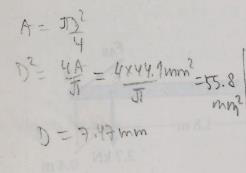 A = πD²/4
D² = 4A/π = 4×44.1mm²/π = 55.8 mm²
D = 7.47 mm